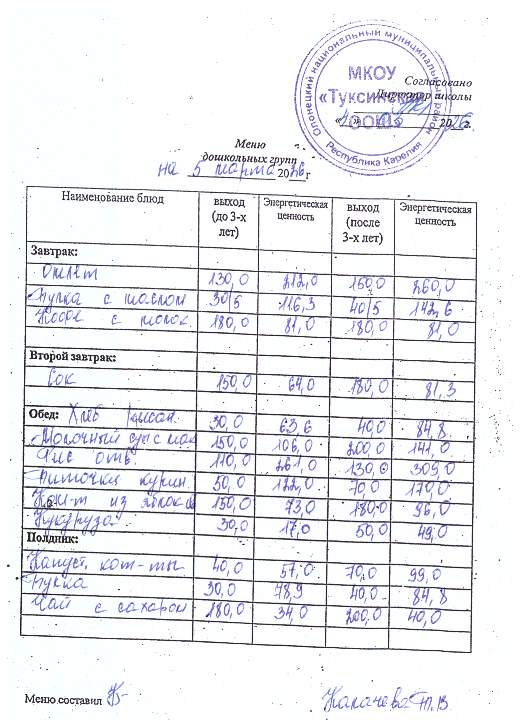 Олонецкий национальный муниципальный район
МКОУ
«Туксинская
СОШ»
Республика Карелия
Согласовано
Директор школы
2026г.
Меню
дошкольных групп
на 5 марта 2026г
Наименование блюд выход (до 3-х лет) Энергетическая ценность выход (после 3-х лет) Энергетическая ценность
Завтрак:
Омлет 130,0 212,0 160,0 260,0
Булка с маслом 30/5 116,3 40/5 142,6
Кофе с молок. 180,0 81,0 180,0 81,0
Второй завтрак:
Сок 150,0 64,0 180,0 81,3
Обед: Хлеб 30,0 63,6 40,0 84,8
Молочный суп с мак 150,0 106,0 200,0 141,0
Рис отв. 110,0 261,0 130,0 309,0
Биточки курин. 50,0 122,0 70,0 170,0
Комп-т из яблок 150,0 73,0 180,0 96,0
Кукуруза 30,0 17,0 50,0 49,0
Полдник:
Капуст. кот-ты 40,0 57,0 70,0 99,0
Булка 30,0 78,9 40,0 84,8
Чай с сахаром 180,0 34,0 200,0 40,0
Меню составил Калачева Т.В.